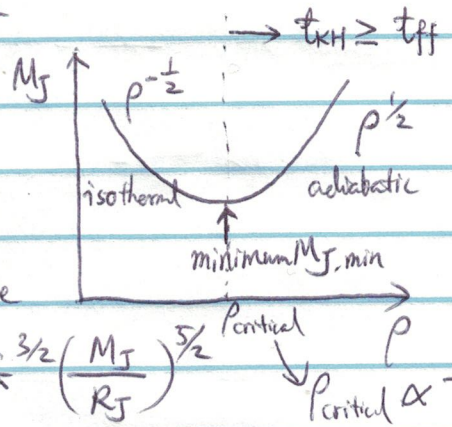 → t_KH ≥ t_ff
M_J
ρ^-1/2
ρ^1/2
isothermal
adiabatic
minimum M_J,min
ρ_critical
ρ
3/2 (M_J/R_J)^5/2
ρ_critical ∝